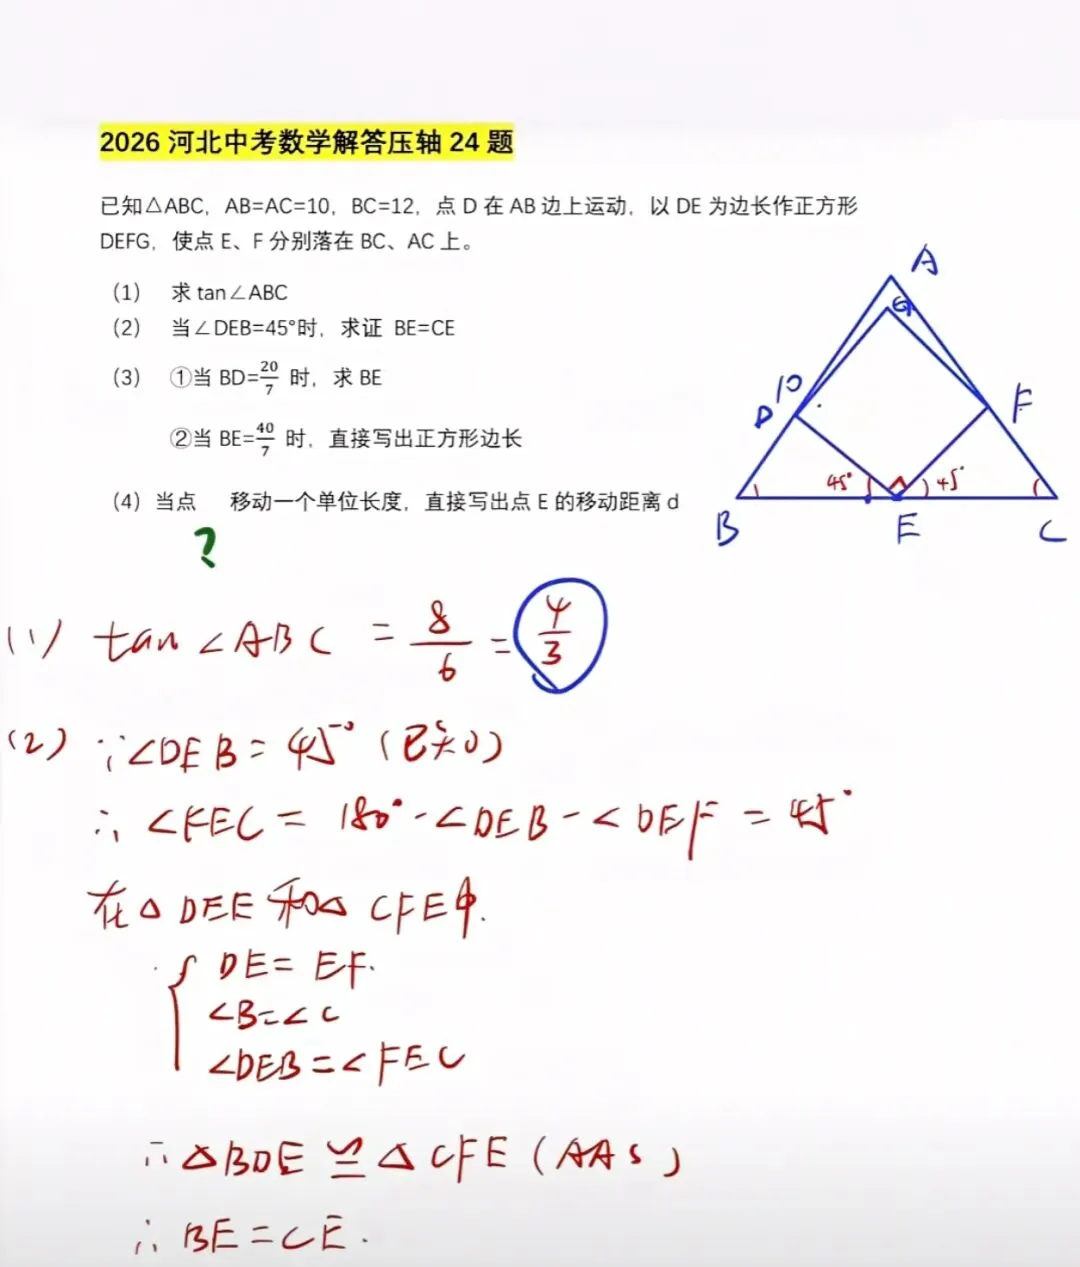 2026 河北中考数学解答压轴 24 题
已知△ABC，AB=AC=10，BC=12，点 D 在 AB 边上运动，以 DE 为边长作正方形
DEFG，使点 E、F 分别落在 BC、AC 上。
(1) 求 tan∠ABC
(2) 当∠DEB=45°时，求证 BE=CE
(3) ①当 BD=20/7 时，求 BE
②当 BE=40/7 时，直接写出正方形边长
(4) 当点 移动一个单位长度，直接写出点 E 的移动距离 d
?
A
G
10
D
F
45°
45°
B
E
C
(1) tan∠ABC = 8/6 = 4/3
(2) ∵∠DEB=45°(已知)
∴∠FEC = 180°-∠DEB-∠DEF = 45°
在△DEE和△CFE中.
DE=EF.
∠B=∠C
∠DEB=∠FEC
∴△BDE≌△CFE(AAS)
∴BE=CE.